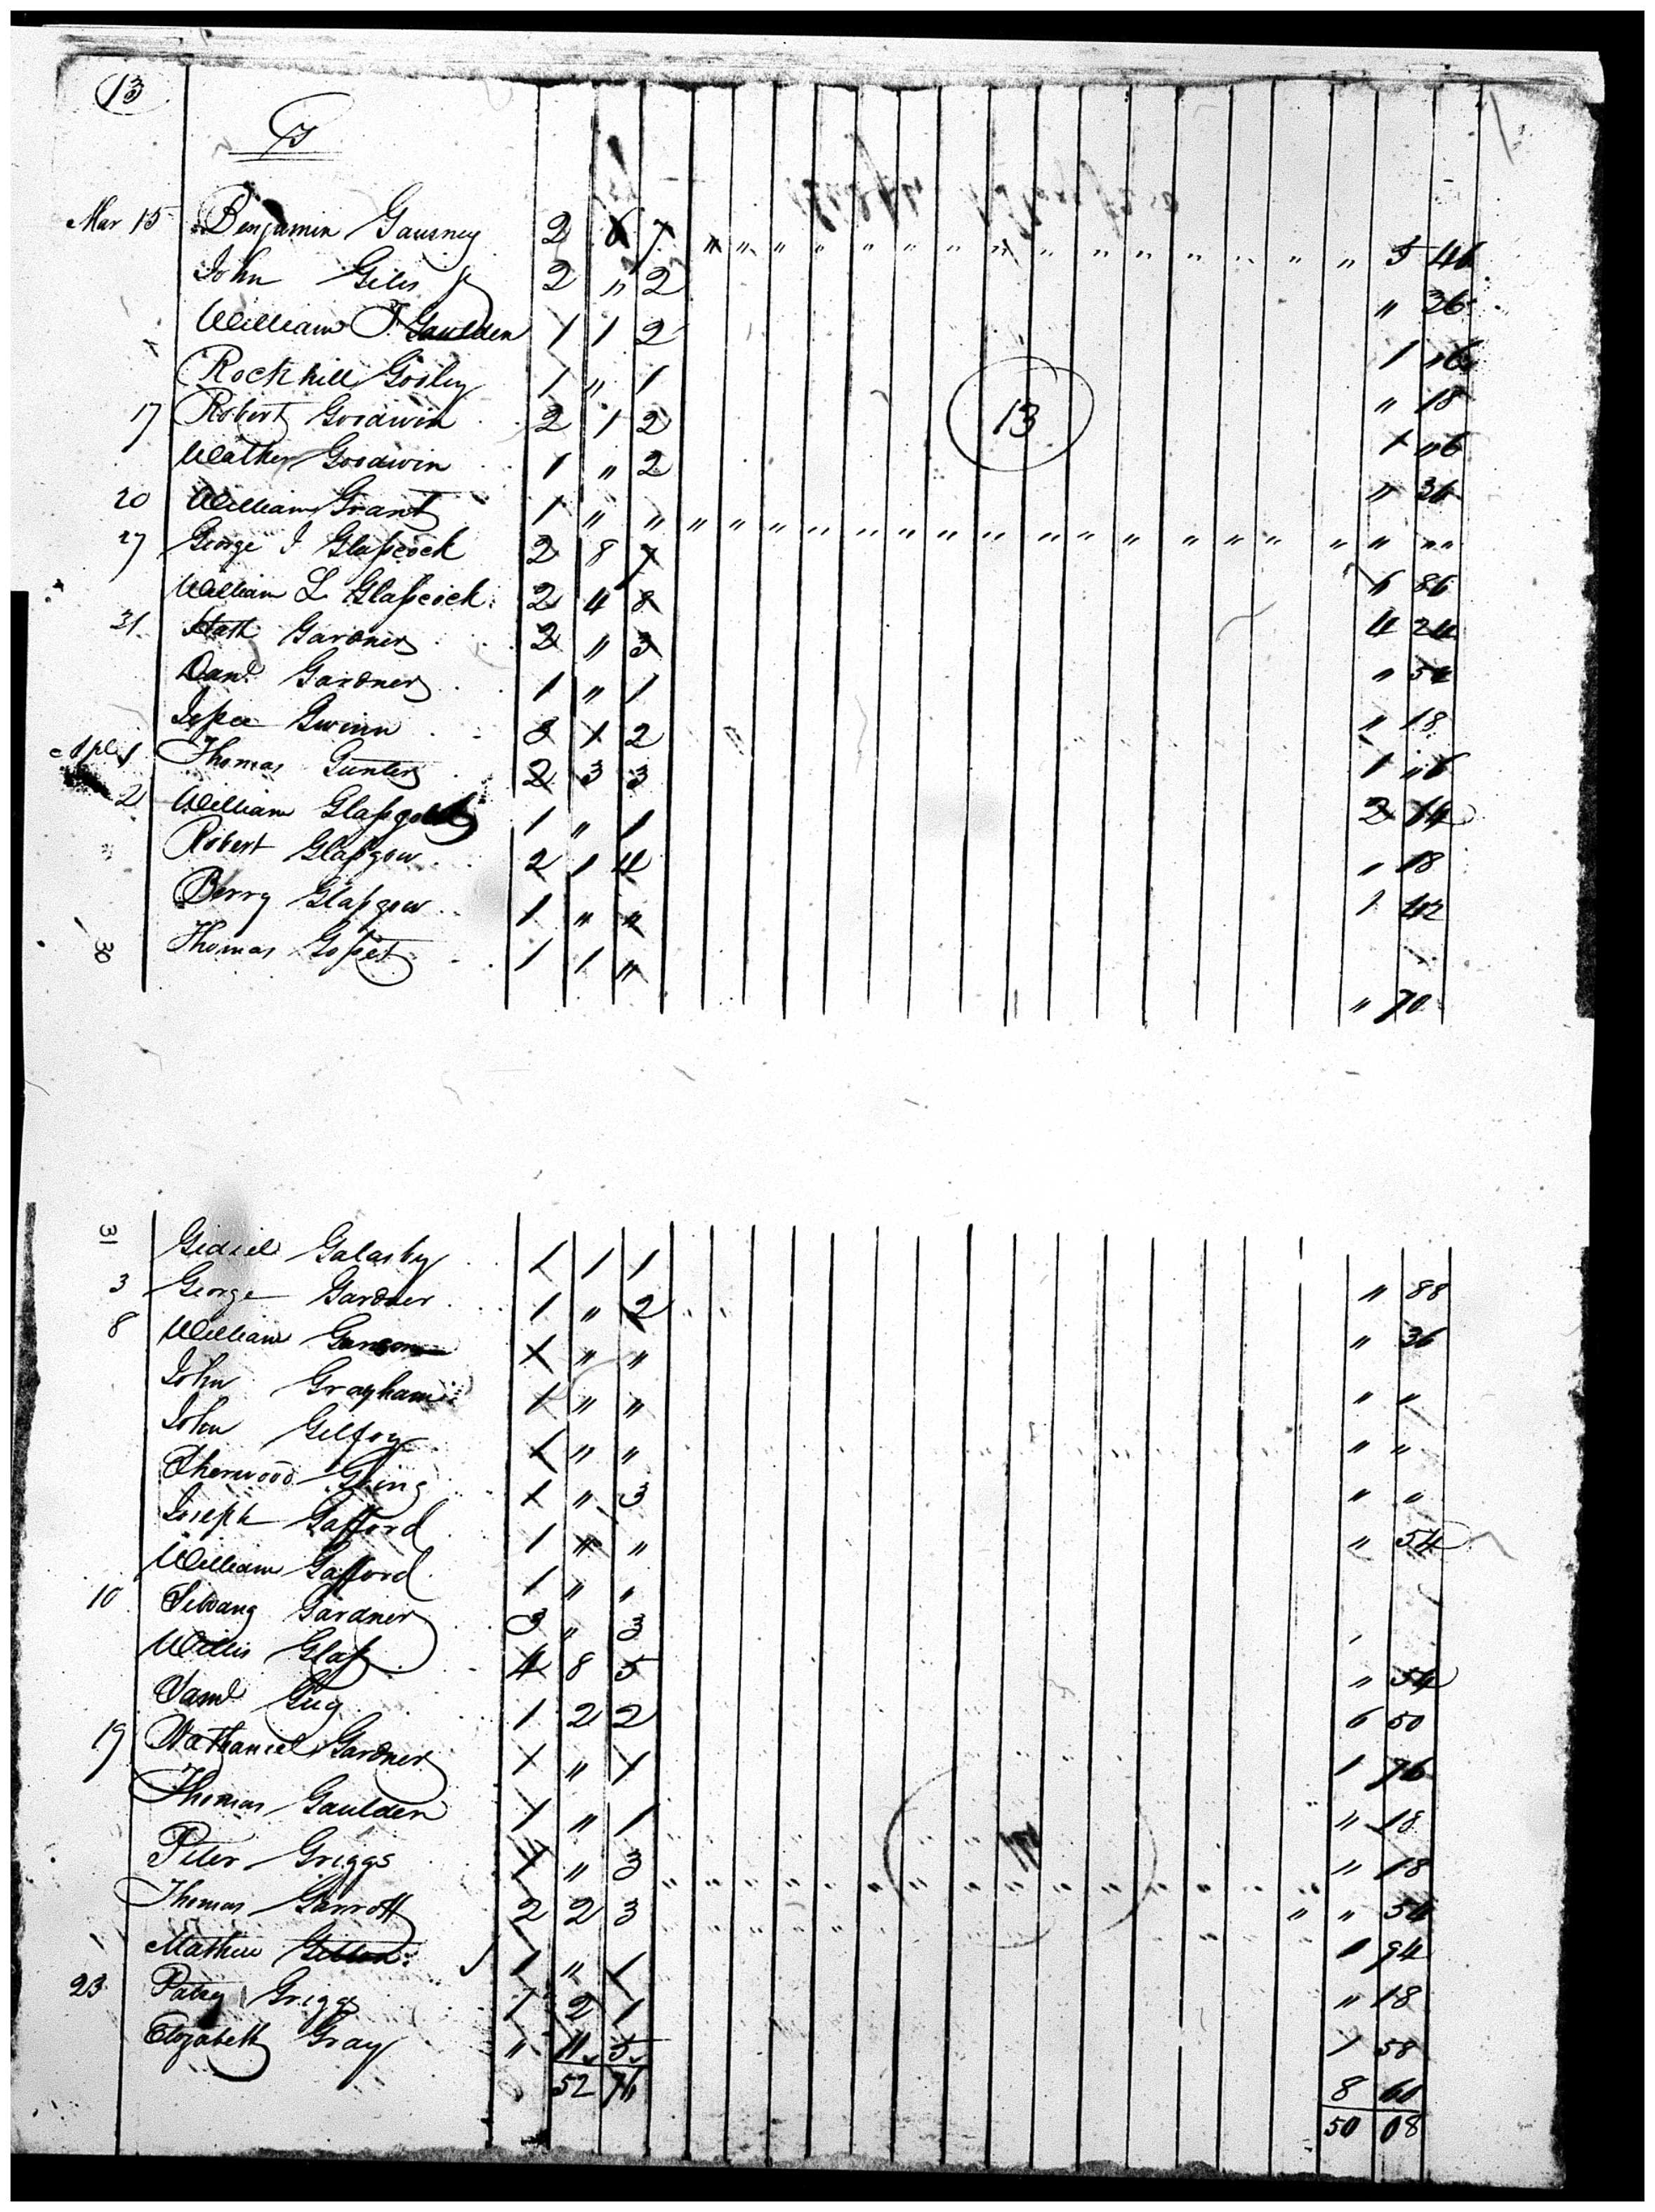 13
G
Mar 15 Benjamin Gausney 2 6 7 " " " " " " " " " " " " " " " 5 46
John Giles Jr 2 " 2 " 36
William T. Gaulden 1 1 2 1 " 6
Rockhill Gosley 1 " 1 " 18
13
17 Robert Goodwin 2 1 2 1 " 6
Mather Goodwin 1 " 2 " 36
20 William Grant 1 " " " " " " " " " " " " " " " " " " " "
27 George I Glascock 2 8 7 6 86
William L. Glascock 2 4 8 4 24
31 Nath Gardner 2 " 3 " 54
Danl. Gardner 1 " 1 " 18
Jessee Gwinn 3 1 2 1 " 6
Apl 1 Thomas Gunter 2 3 3 2 64
2 William 1 " 1 " 18
Robert Glasgow 2 1 4 1 42
Berry Glasgow 1 " "
Thomas Gosset 1 1 " " 70
30
31
Gidiel Galasby 1 1 1 " 88
3 George Gardner 1 " 2 " 36
8 William 1 " " " "
John Grayham 1 " " " "
John Gilfoy 1 " " " "
Sherwood Going 1 " 3 " 54
Joseph Gafford 1 " "
William Gafford 1 " "
10 Gardner 3 " 3 " 54
Willis Glass 4 8 5 6 50
Saml Guy 1 2 2 1 76
19 Nathaniel Gardner 1 " 1 " 18
Thomas Gaulden 1 " 1 " 18
Peter Griggs 1 " 3 " 54
Thomas Garrott 2 2 3 1 94
Mathew 1 " 1 " 18
23 Patsy Griggs 1 2 1 1 58
Elizabeth Gray " 11 5 8 60
52 76 50 08